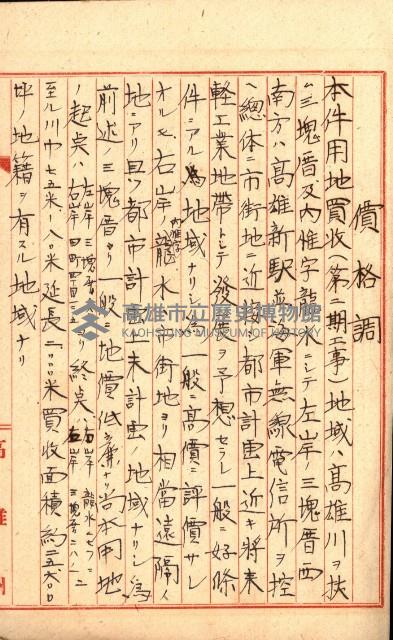 價格調
本件用地買收(第二期工事)地域ハ高雄川ヲ扶
ム三塊厝及內惟字龍水ニシテ左岸ノ三塊厝西
南方ハ高雄新駅並海軍無線電信所ヲ控
ヘ總体ニ市街地ニ近ク都市計画上近キ將来
軽工業地帶トシテ發展ヲ予想セラレ一般ニ好條
件ニアル為地域ナリシ為一般ニ高價ニ評價サレ
オルモ右岸ノ龍水ハ市街地ヨリ相當遠隔ノ
內惟字
地ニアリ且ツ都市計画上未計画ノ地域ナリシ為
前述ノ三塊厝ヨリ一般ニ地價低廉ナリ尚本用地
ノ起点ハ 左岸 三塊厝 右岸 終点 右岸 龍水 左岸 三塊厝
至ル川巾七五米 八〇米延長 米買收面積約二五六〇〇
坪ノ地籍ヲ有スル地域ナリ
高雄州
高雄市立歷史博物館
KAOHSIUNG MUSEUM OF HISTORY